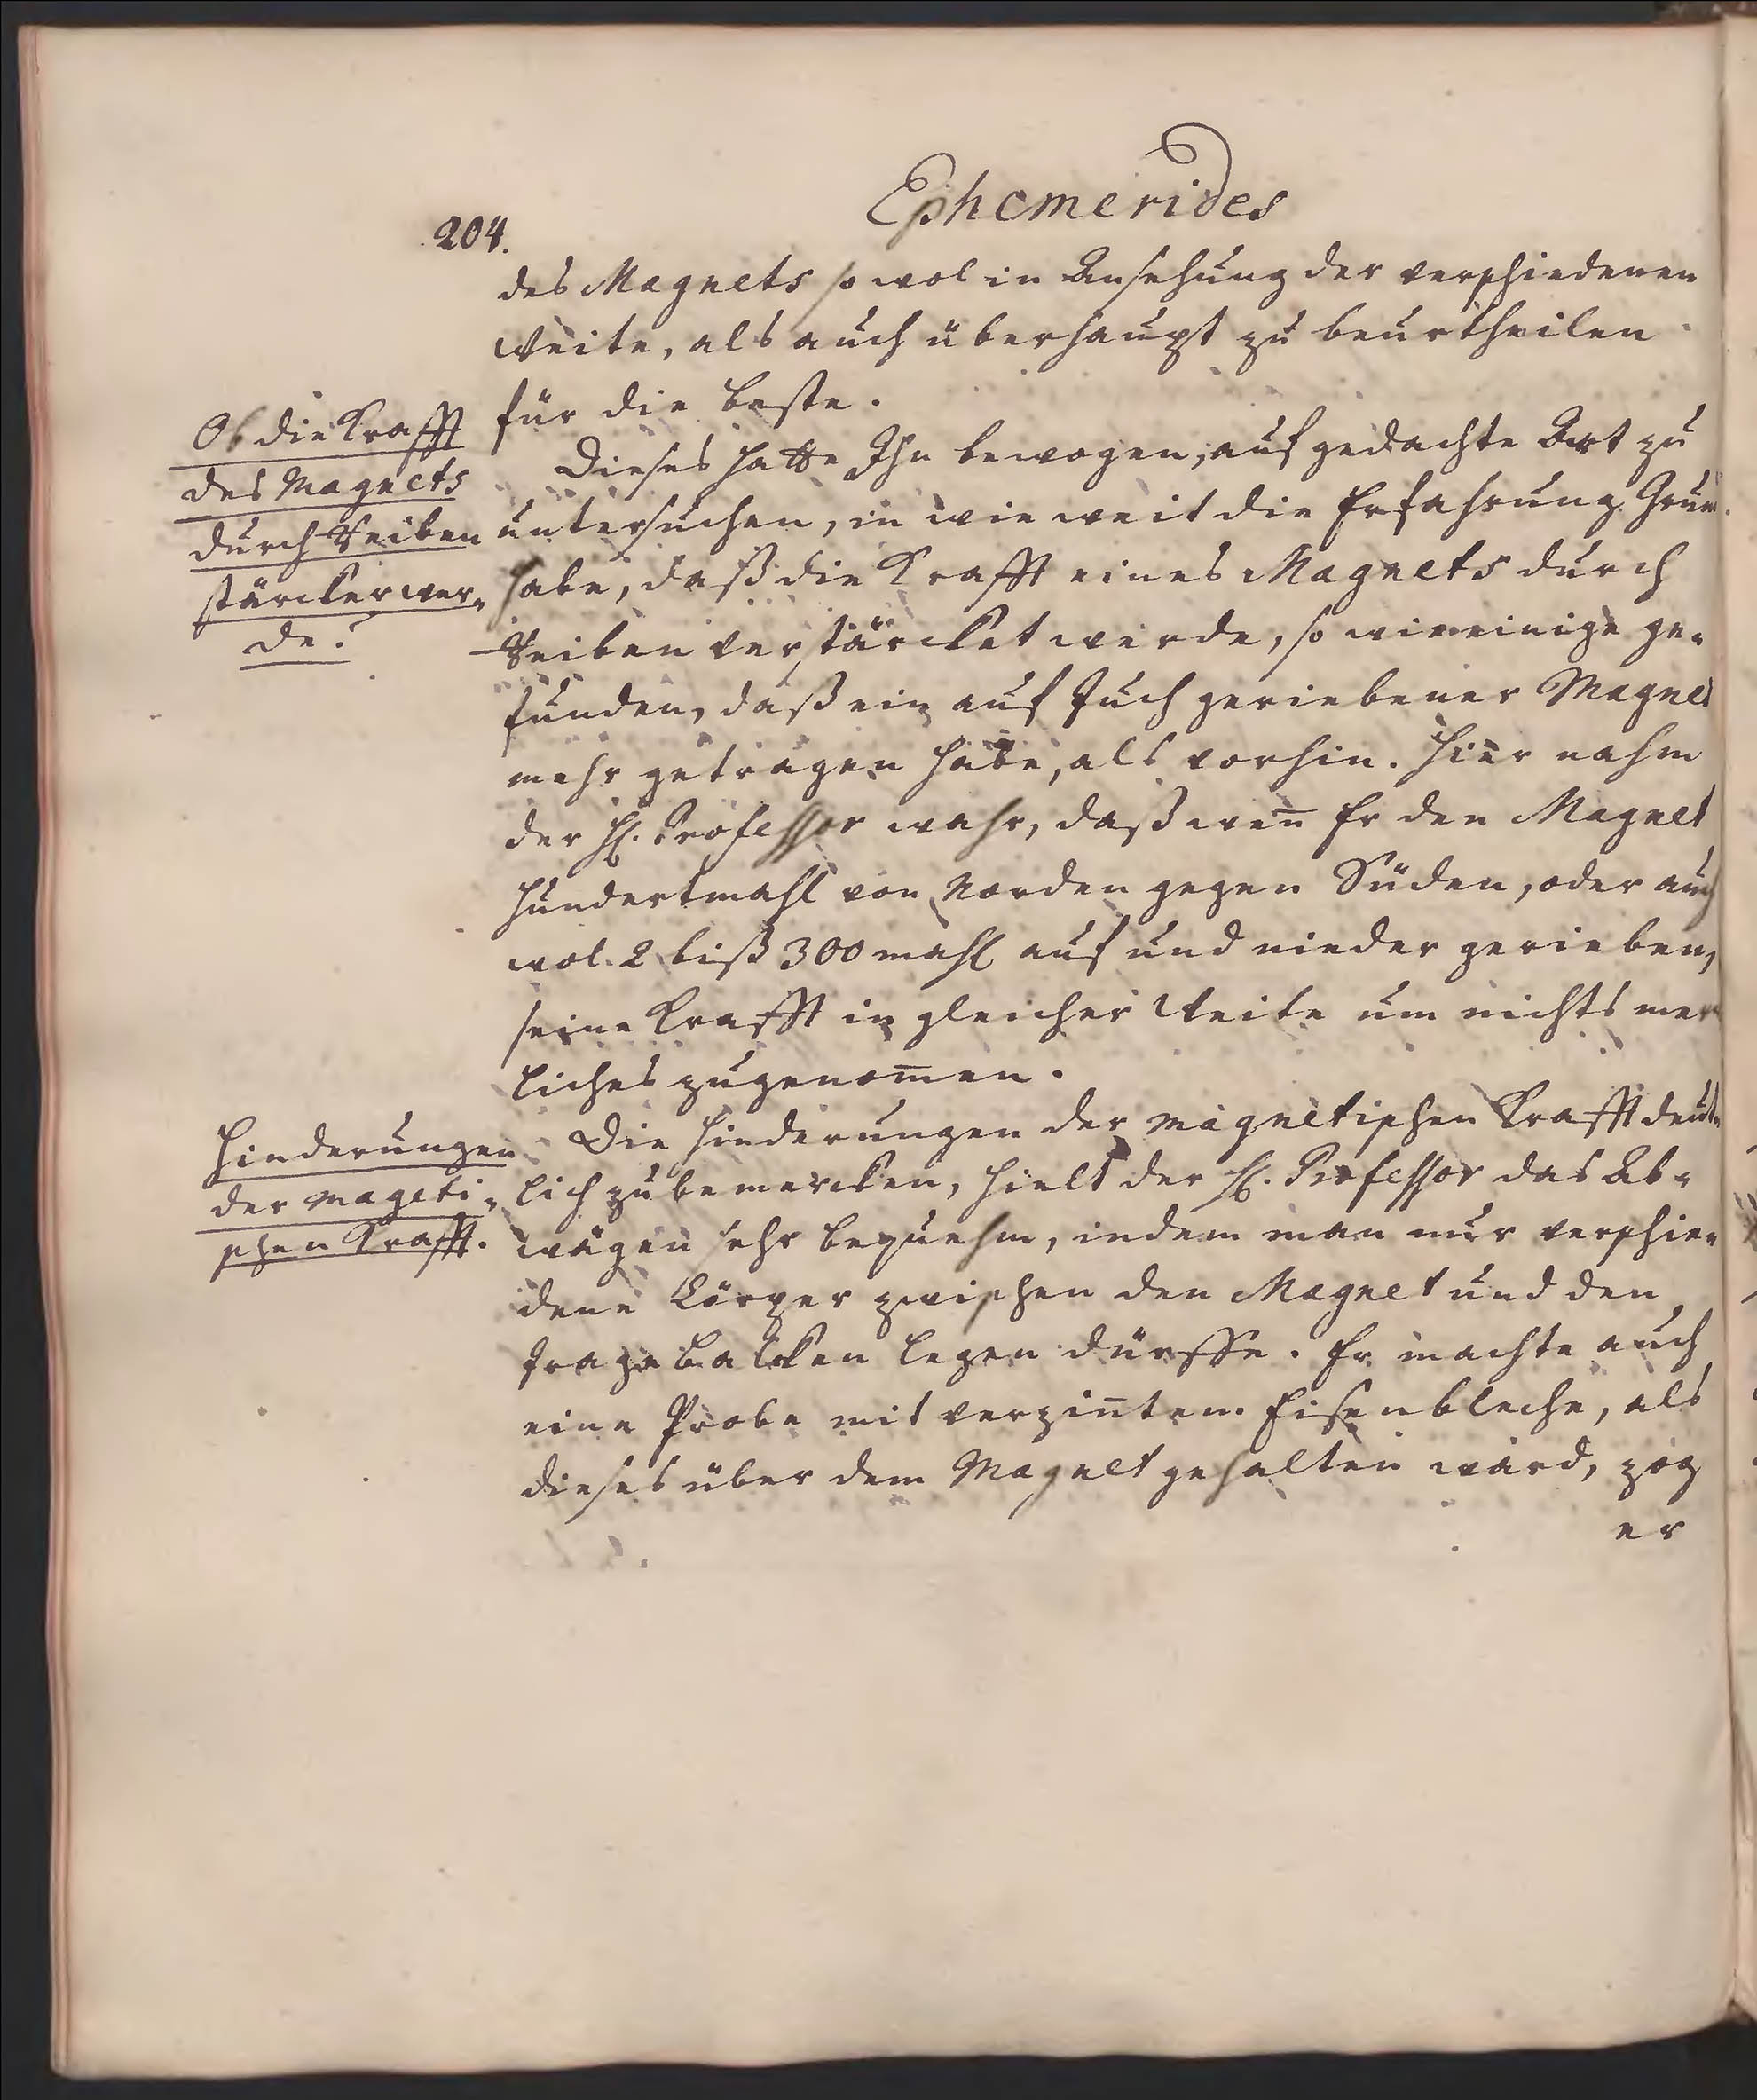 Ephemerides
204.
des Magnets so wol in Ansehung der verschiedenen
Weite, als auch überhaupt zu beurtheilen
für die beste.
Ob die Krafft
des Magnets
durch Reiben
stärcker wer-
de?
Dieses hatte Ihn bewogen, auf gedachte Art zu
untersuchen, in wie weit die Erfahrung Grun
habe, daß die Krafft eines Magnets durch
Reiben verstärcket werde, so wie einige ge-
funden, daß ein auf Tuch geriebener Magnet
mehr getragen habe, als vorhin. Hier nahm
der H. Professor wahr, daß wen̄ Er den Magnet
hundertmahl von Norden gegen Süden, oder auch
wol 2 biß 300 mahl auf und nieder gerieben,
seine Krafft in gleicher Weite um nichts mer
liches zugenom̄en.
Hinderungen
der mageti-
schen Krafft.
Die Hinderungen der magnetischen Krafft deut-
lich zu bemercken, hielt der H. Professor das Ab-
wägen sehr bequehm, indem man nur verschie-
dene Cörper zwischen den Magnet und den
Trage Balcken legen dürffe. Er machte auch
eine Probe mit verzin̄tem Eisenbleche, als
dieses über dem Magnet gehalten ward, zog
er